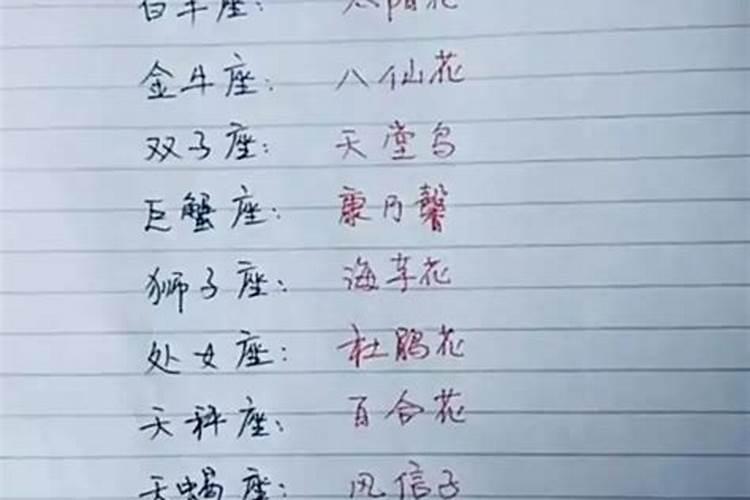 白羊座: 太阳花
金牛座: 八仙花
双子座: 天堂鸟
巨蟹座: 康乃馨
狮子座: 海芋花
处女座: 杜鹃花
天秤座: 百合花
天蝎座: 风信子